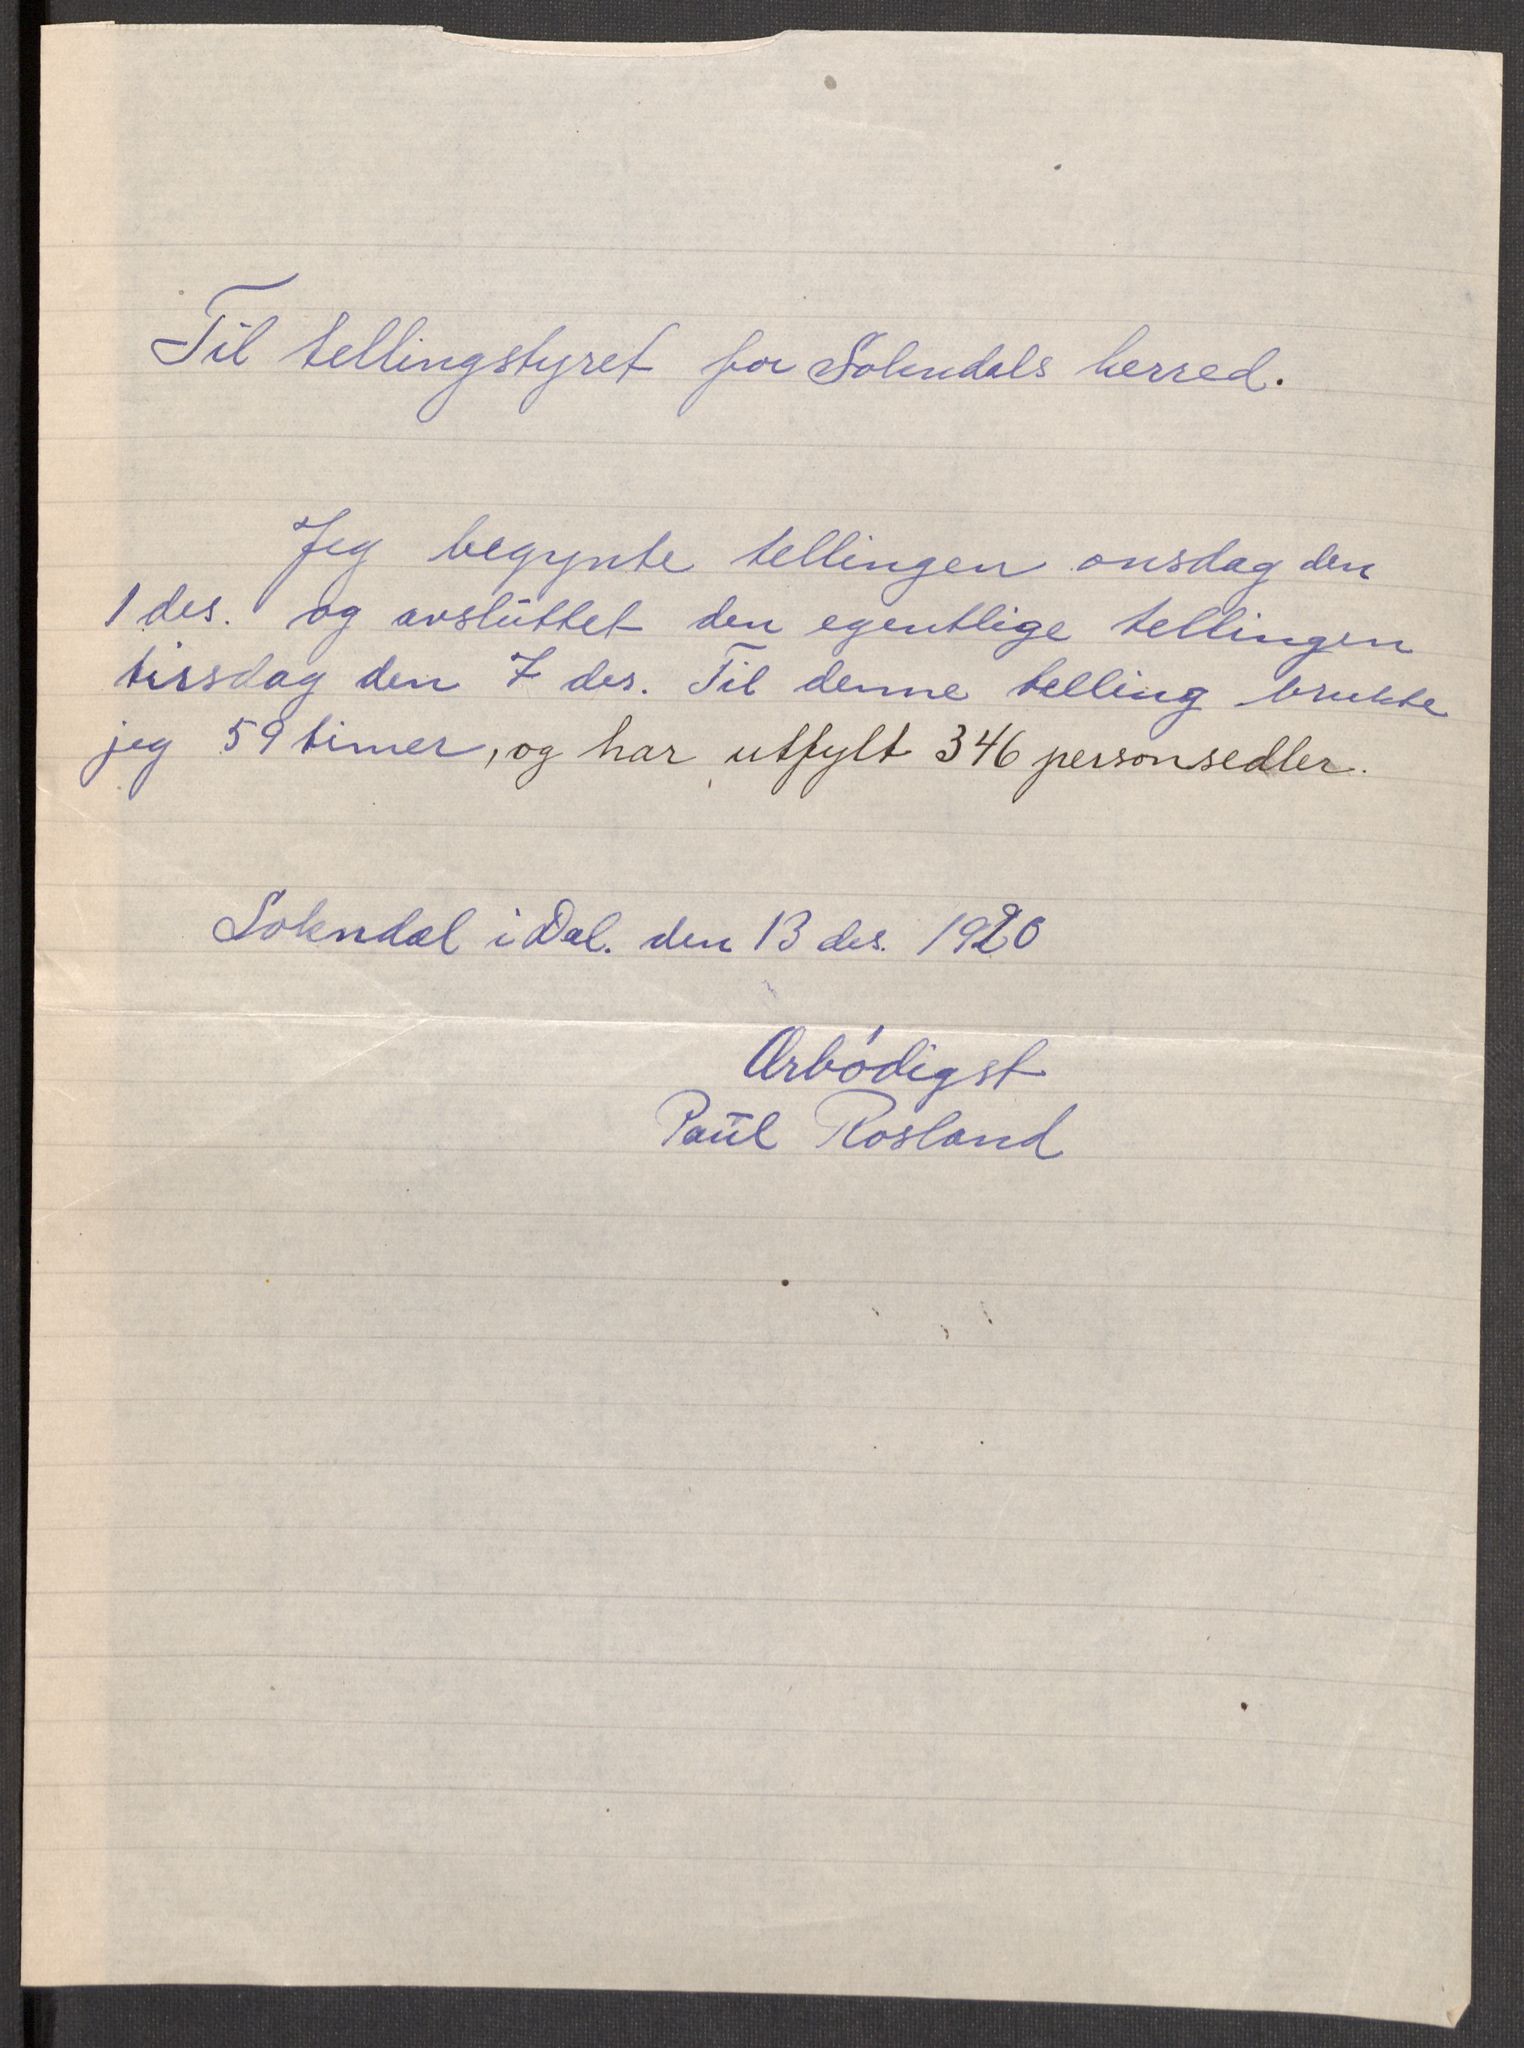 Til tellingstyret for Sokndals herred.
Jeg begynte tellingen onsdag den
1 des. og avsluttet den egentlige tellingen
tirsdag den 7 des. Til denne telling brukte
jeg 59 timer, og har utfylt 346 personsedler.
Sokndal i Dal. den 13 des. 1920
Ærbödigst
Paul Rosland